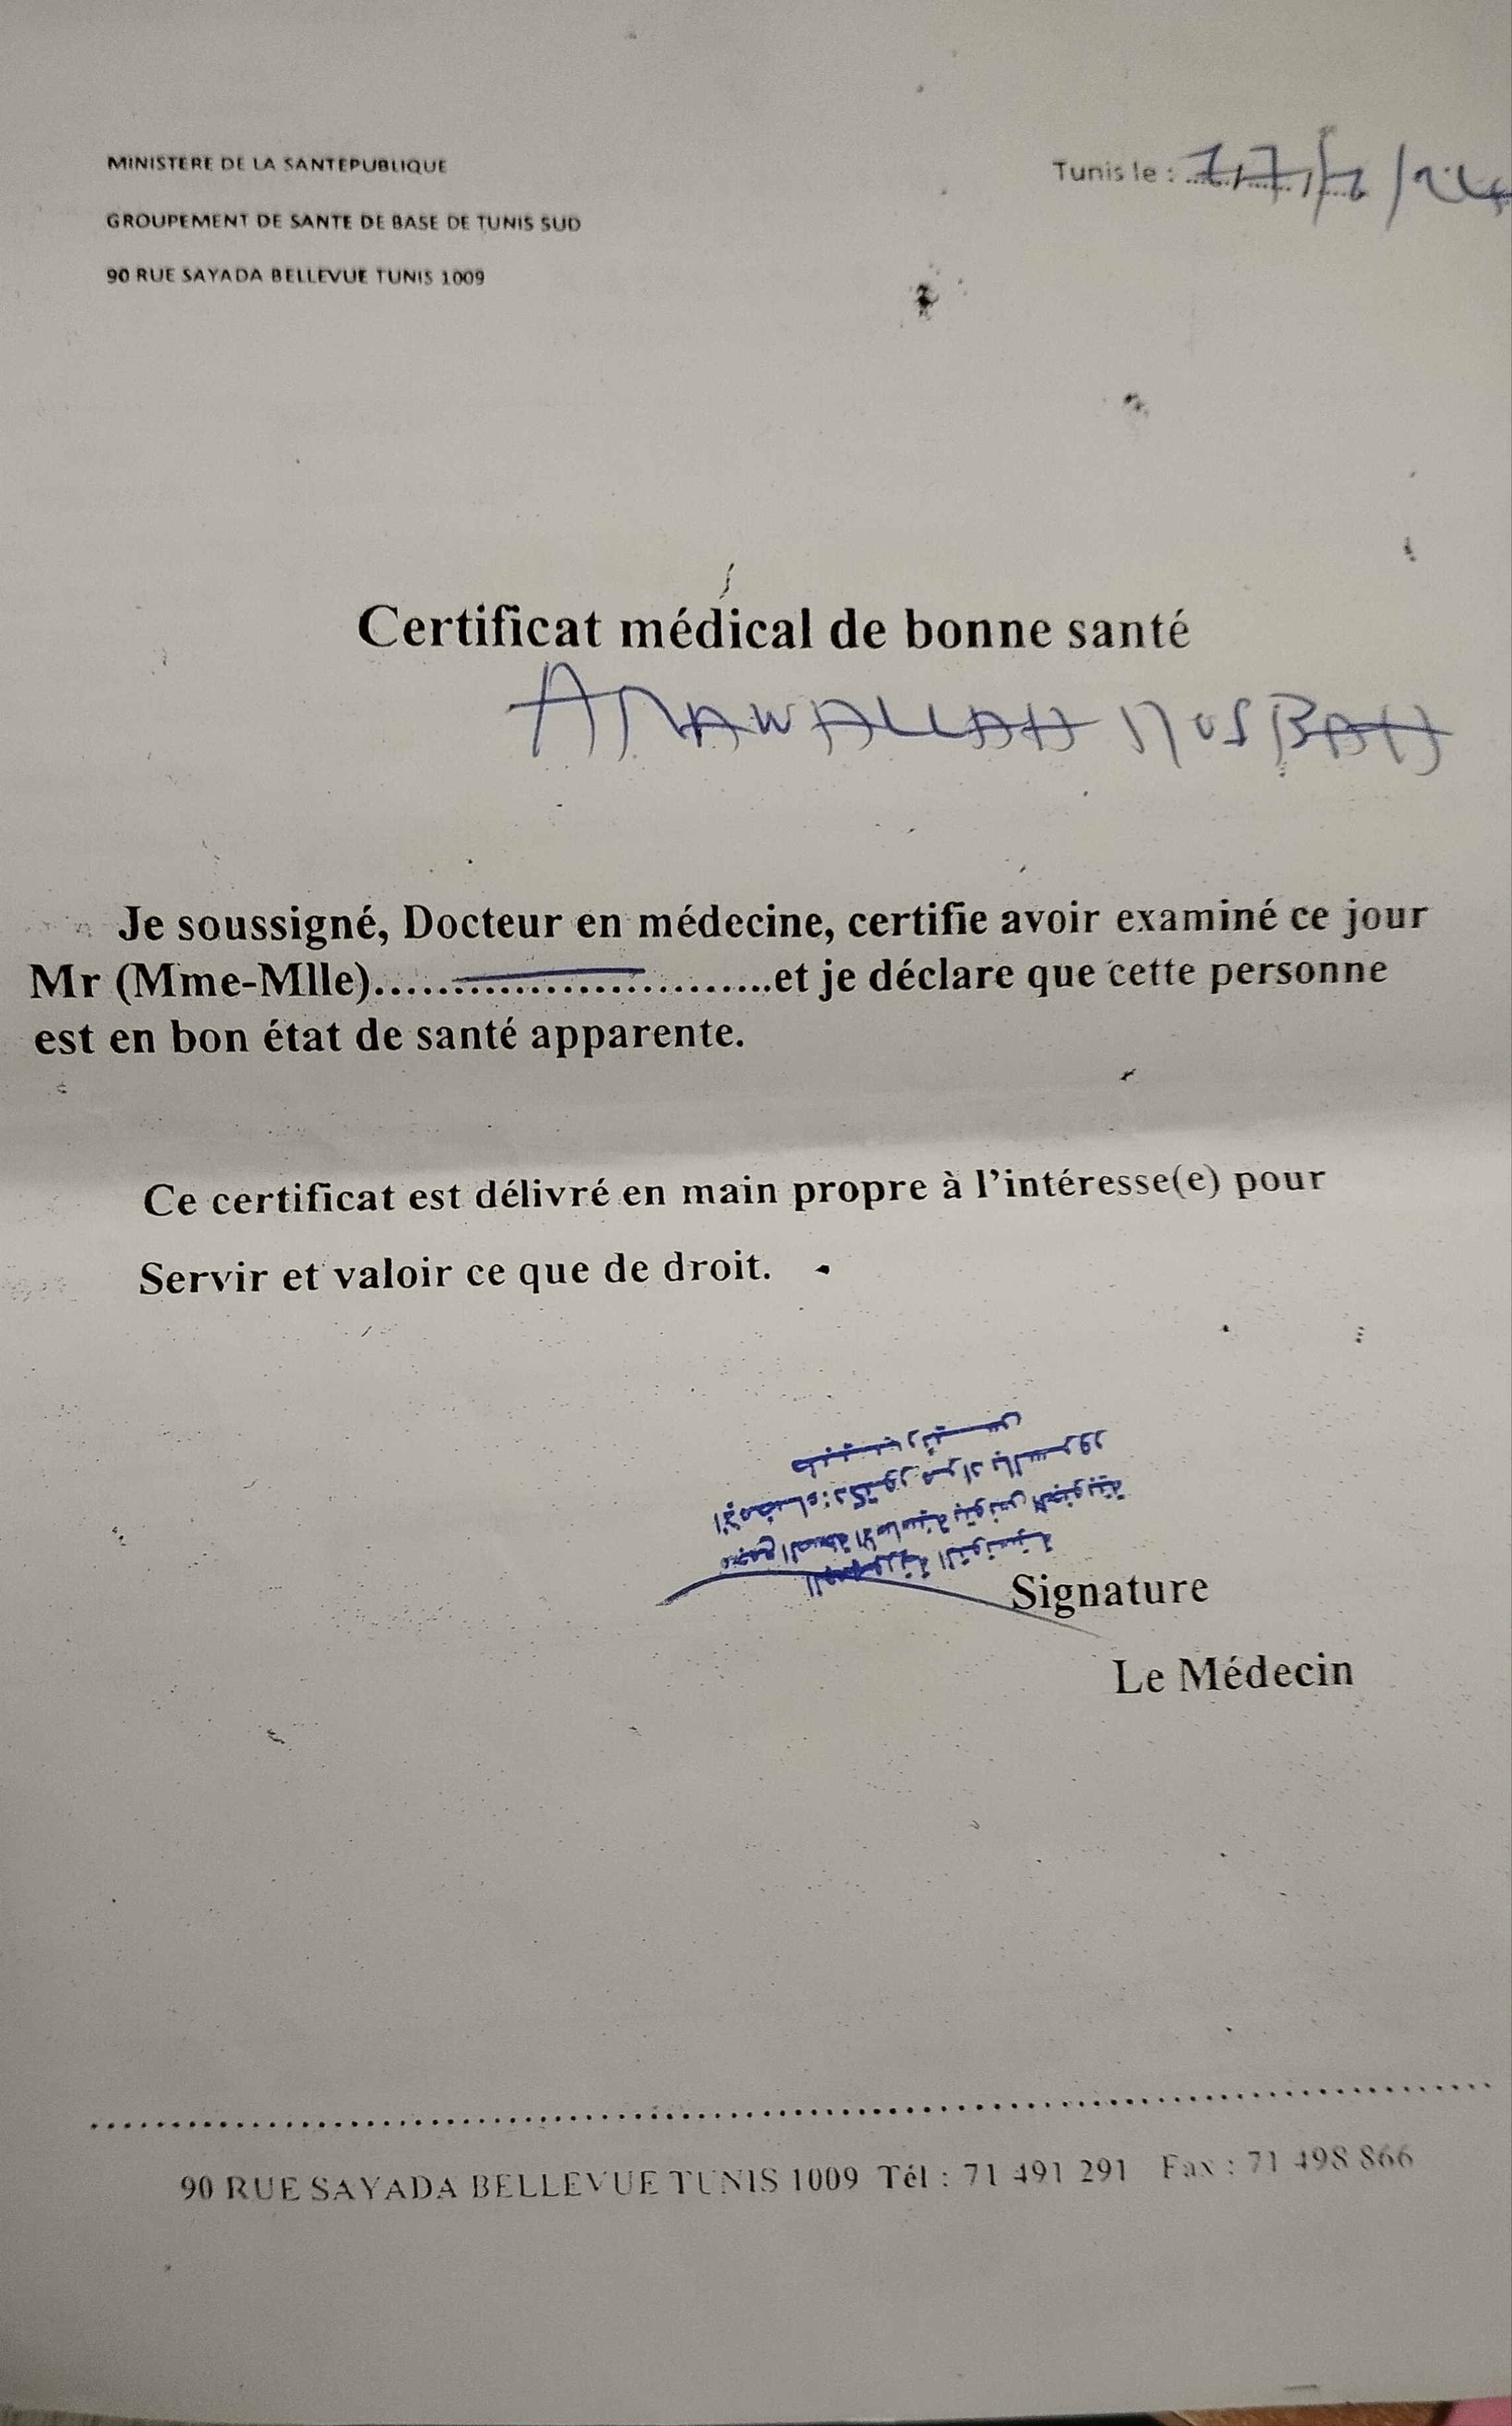 MINISTERE DE LA SANTEPUBLIQUE
Tunis le :
GROUPEMENT DE SANTE DE BASE DE TUNIS SUD
90 RUE SAYADA BELLEVUE TUNIS 1009
Certificat médical de bonne santé
Je soussigné, Docteur en médecine, certifie avoir examiné ce jour
Mr (Mme-Mlle)..............................et je déclare que cette personne
est en bon état de santé apparente.
Ce certificat est délivré en main propre à l'intéresse(e) pour
Servir et valoir ce que de droit.
الجمهورية التونسية
مجمع الصحة الأساسية بتونس الجنوبية
الإمضاء: دكتور مراد بالسرور
Signature
Le Médecin
90 RUE SAYADA BELLEVUE TUNIS 1009 Tél : 71 491 291 Fax : 71 498 866